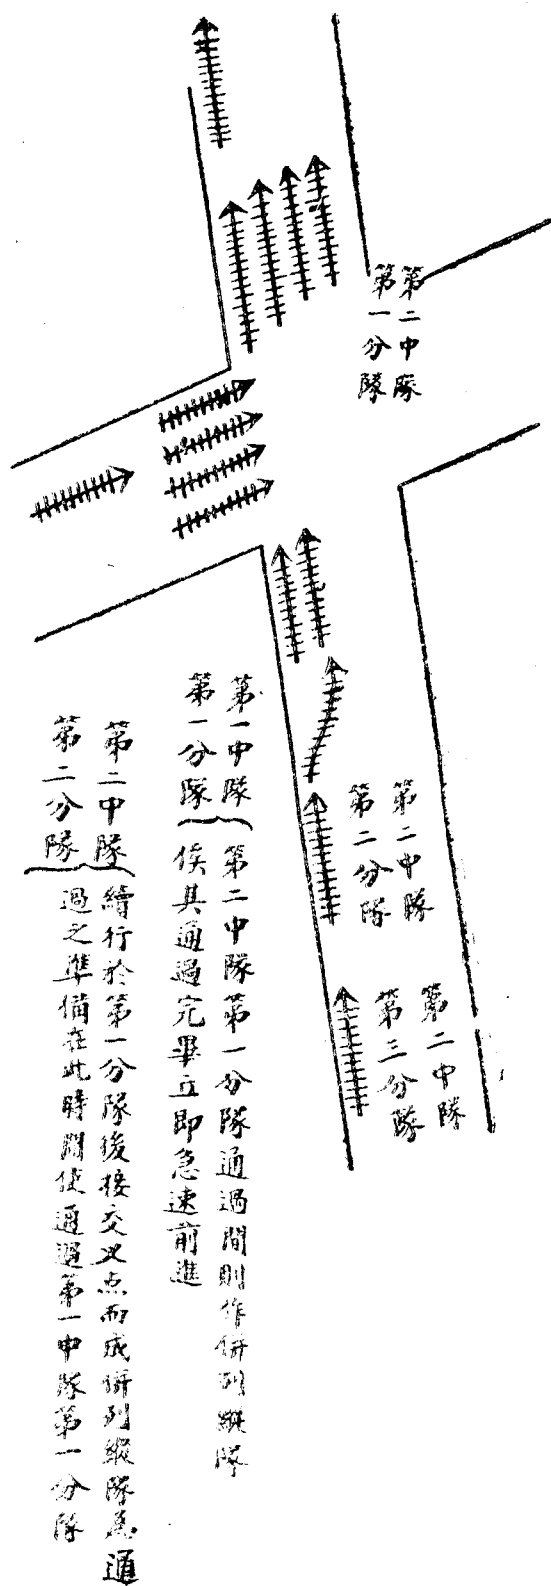 第二中隊
第一分隊
第二中隊
第二分隊
第二中隊
第三分隊
第一中隊
第一分隊
第二中隊第一分隊通過間則作併列縱隊
俟其通過完畢立即急速前進
第二中隊
第二分隊
續行於第一分隊後接交叉点而成併列縱隊為通
過之準備在此時間使通過第一中隊第一分隊